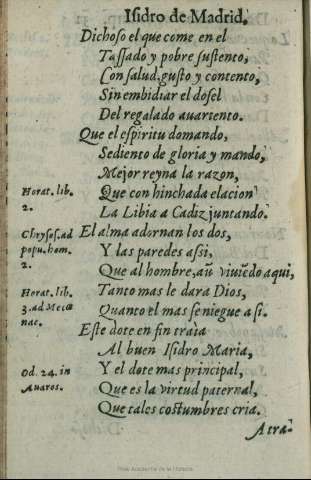 Isidro de Madrid.
Dichoso el que come en el
Tassado y pobre sustento,
Con salud, gusto y contento,
Sin embidiar el dosel
Del regalado auariento.
Que el espiritu domando,
Sediento de gloria y mando,
Mejor reyna la razon,
Horat. lib.
2.
Que con hinchada elacion
La Libia a Cadiz juntando.
Chrysos. ad
popu. hom.
2.
El alma adornan los dos,
Y las paredes assi,
Que al hombre, aũ viuiẽdo aqui,
Horat. lib.
3. ad Mecœ
nac.
Tanto mas le dara Dios,
Quanto el mas se niegue a si.
Este dote en fin traia
Al buen Isidro Maria,
Od. 24. in
Auaros.
Y el dote mas principal,
Que es la virtud paternal,
Que tales costumbres cria.
Atra-
Real Academia de la Historia